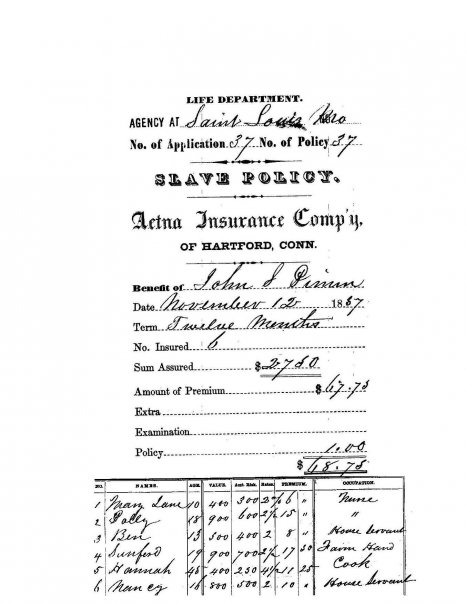 LIFE DEPARTMENT.
AGENCY AT Saint Louis Mo
No. of Application 37 No. of Policy 37
SLAVE POLICY.
Aetna Insurance Comp'y,
OF HARTFORD, CONN.
Benefit of John S
Date November 12 1857
Term Twelve Months
No. Insured 6
Sum Assured $2750
Amount of Premium $67.75
Extra
Examination
Policy 1.00
$68.75
NO. NAMES. AGE. VALUE. Amt. Risk. Rates. PREMIUM. OCCUPATION.
1 Mary Lane 10 400 300 2 6 " Nurse
2 Polly 18 900 600 2½ 15 " "
3 Ben 13 500 400 2 8 " House Servant
4 Sunford 19 900 700 2½ 17 50 Farm Hand
5 Hannah 45 400 250 4½ 11 25 Cook
6 Nancy 16 800 500 2 10 " House Servant